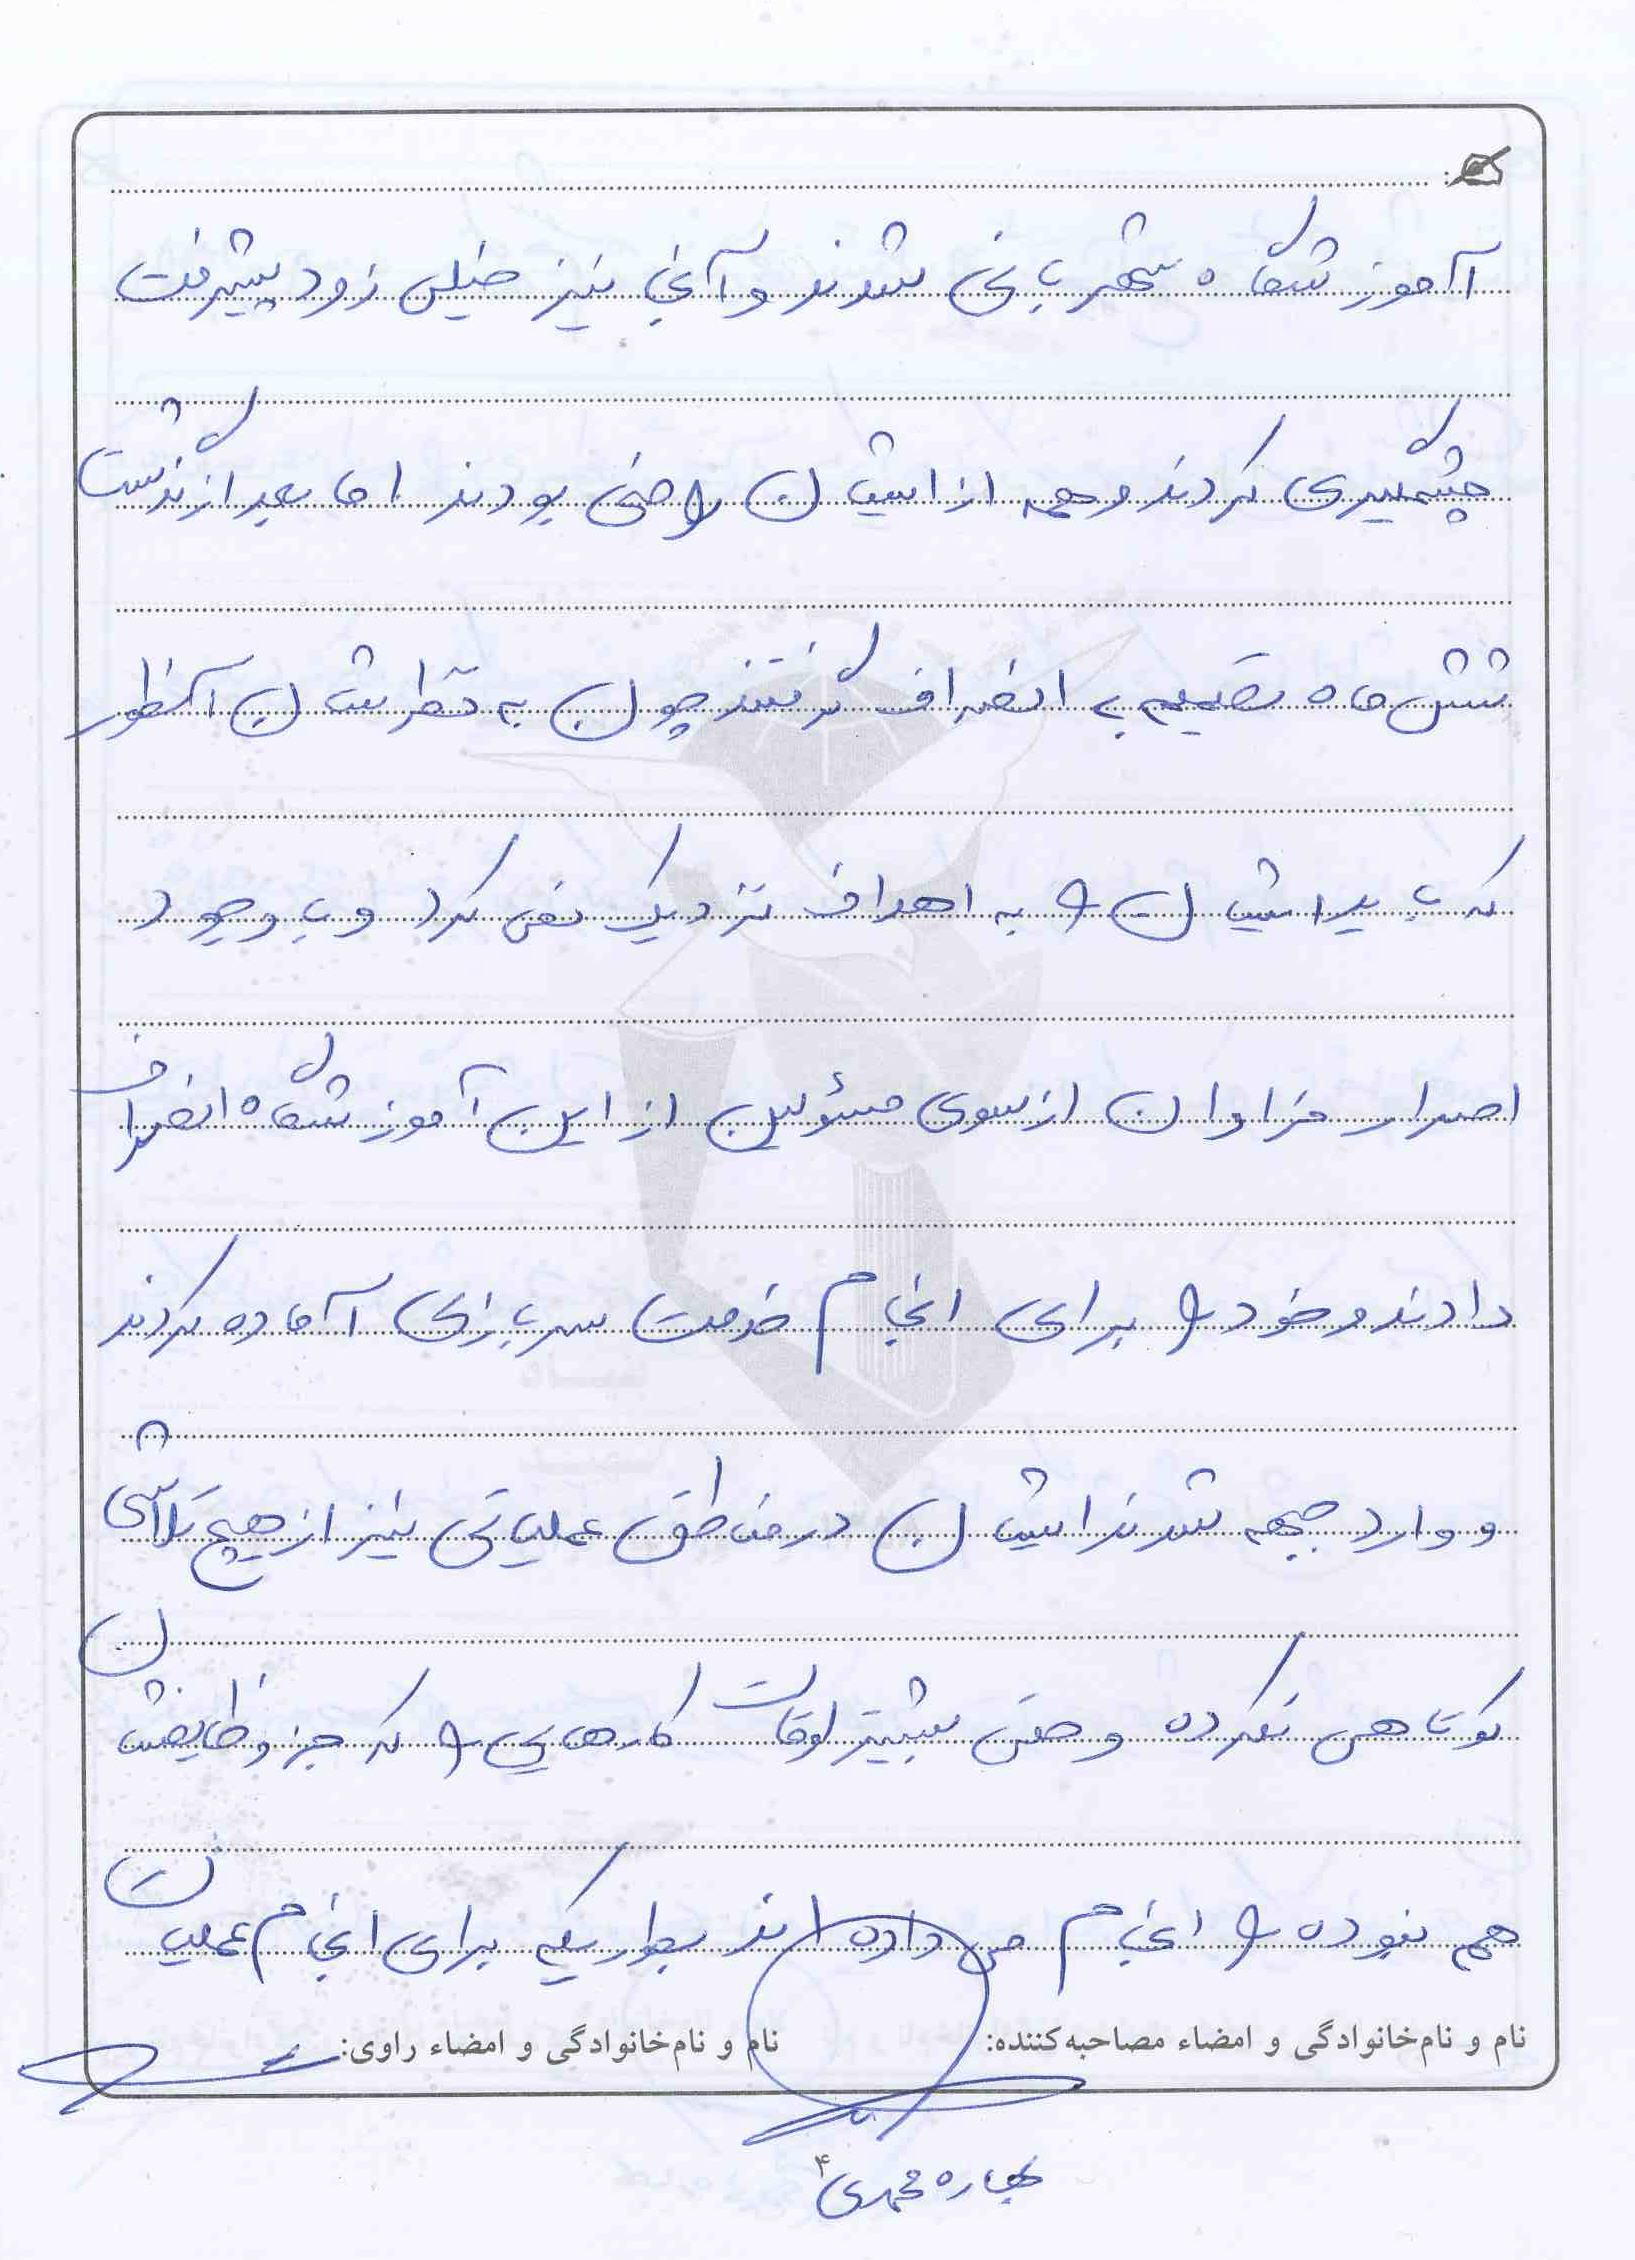 آموزشگاه شهربانی شدند و آنجا نیز خیلی زود پیشرفت
چشمگیری کردند و همه از ایشان راضی بودند اما بعد از گذشت
شش ماه تصمیم به انصراف گرفتند چون به نظرشان آنطور
که باید ایشان را به اهداف نزدیک نمی کرد و با وجود
اصرار فراوان از سوی مسئولین از این آموزشگاه انصراف
دادند و خود را برای انجام خدمت سربازی آماده کردند
و وارد جبهه شدند ایشان در مناطق عملیاتی نیز از هیچ تلاشی
کوتاهی نکرده و حتی بیشتر اوقات کارهایی را که جز وظایفشان
هم نبوده را انجام می داده اند بطوریکه برای انجام عملیات
نام و نام‌خانوادگی و امضاء مصاحبه‌کننده: نام و نام‌خانوادگی و امضاء راوی:
بهاره محمدی
۴